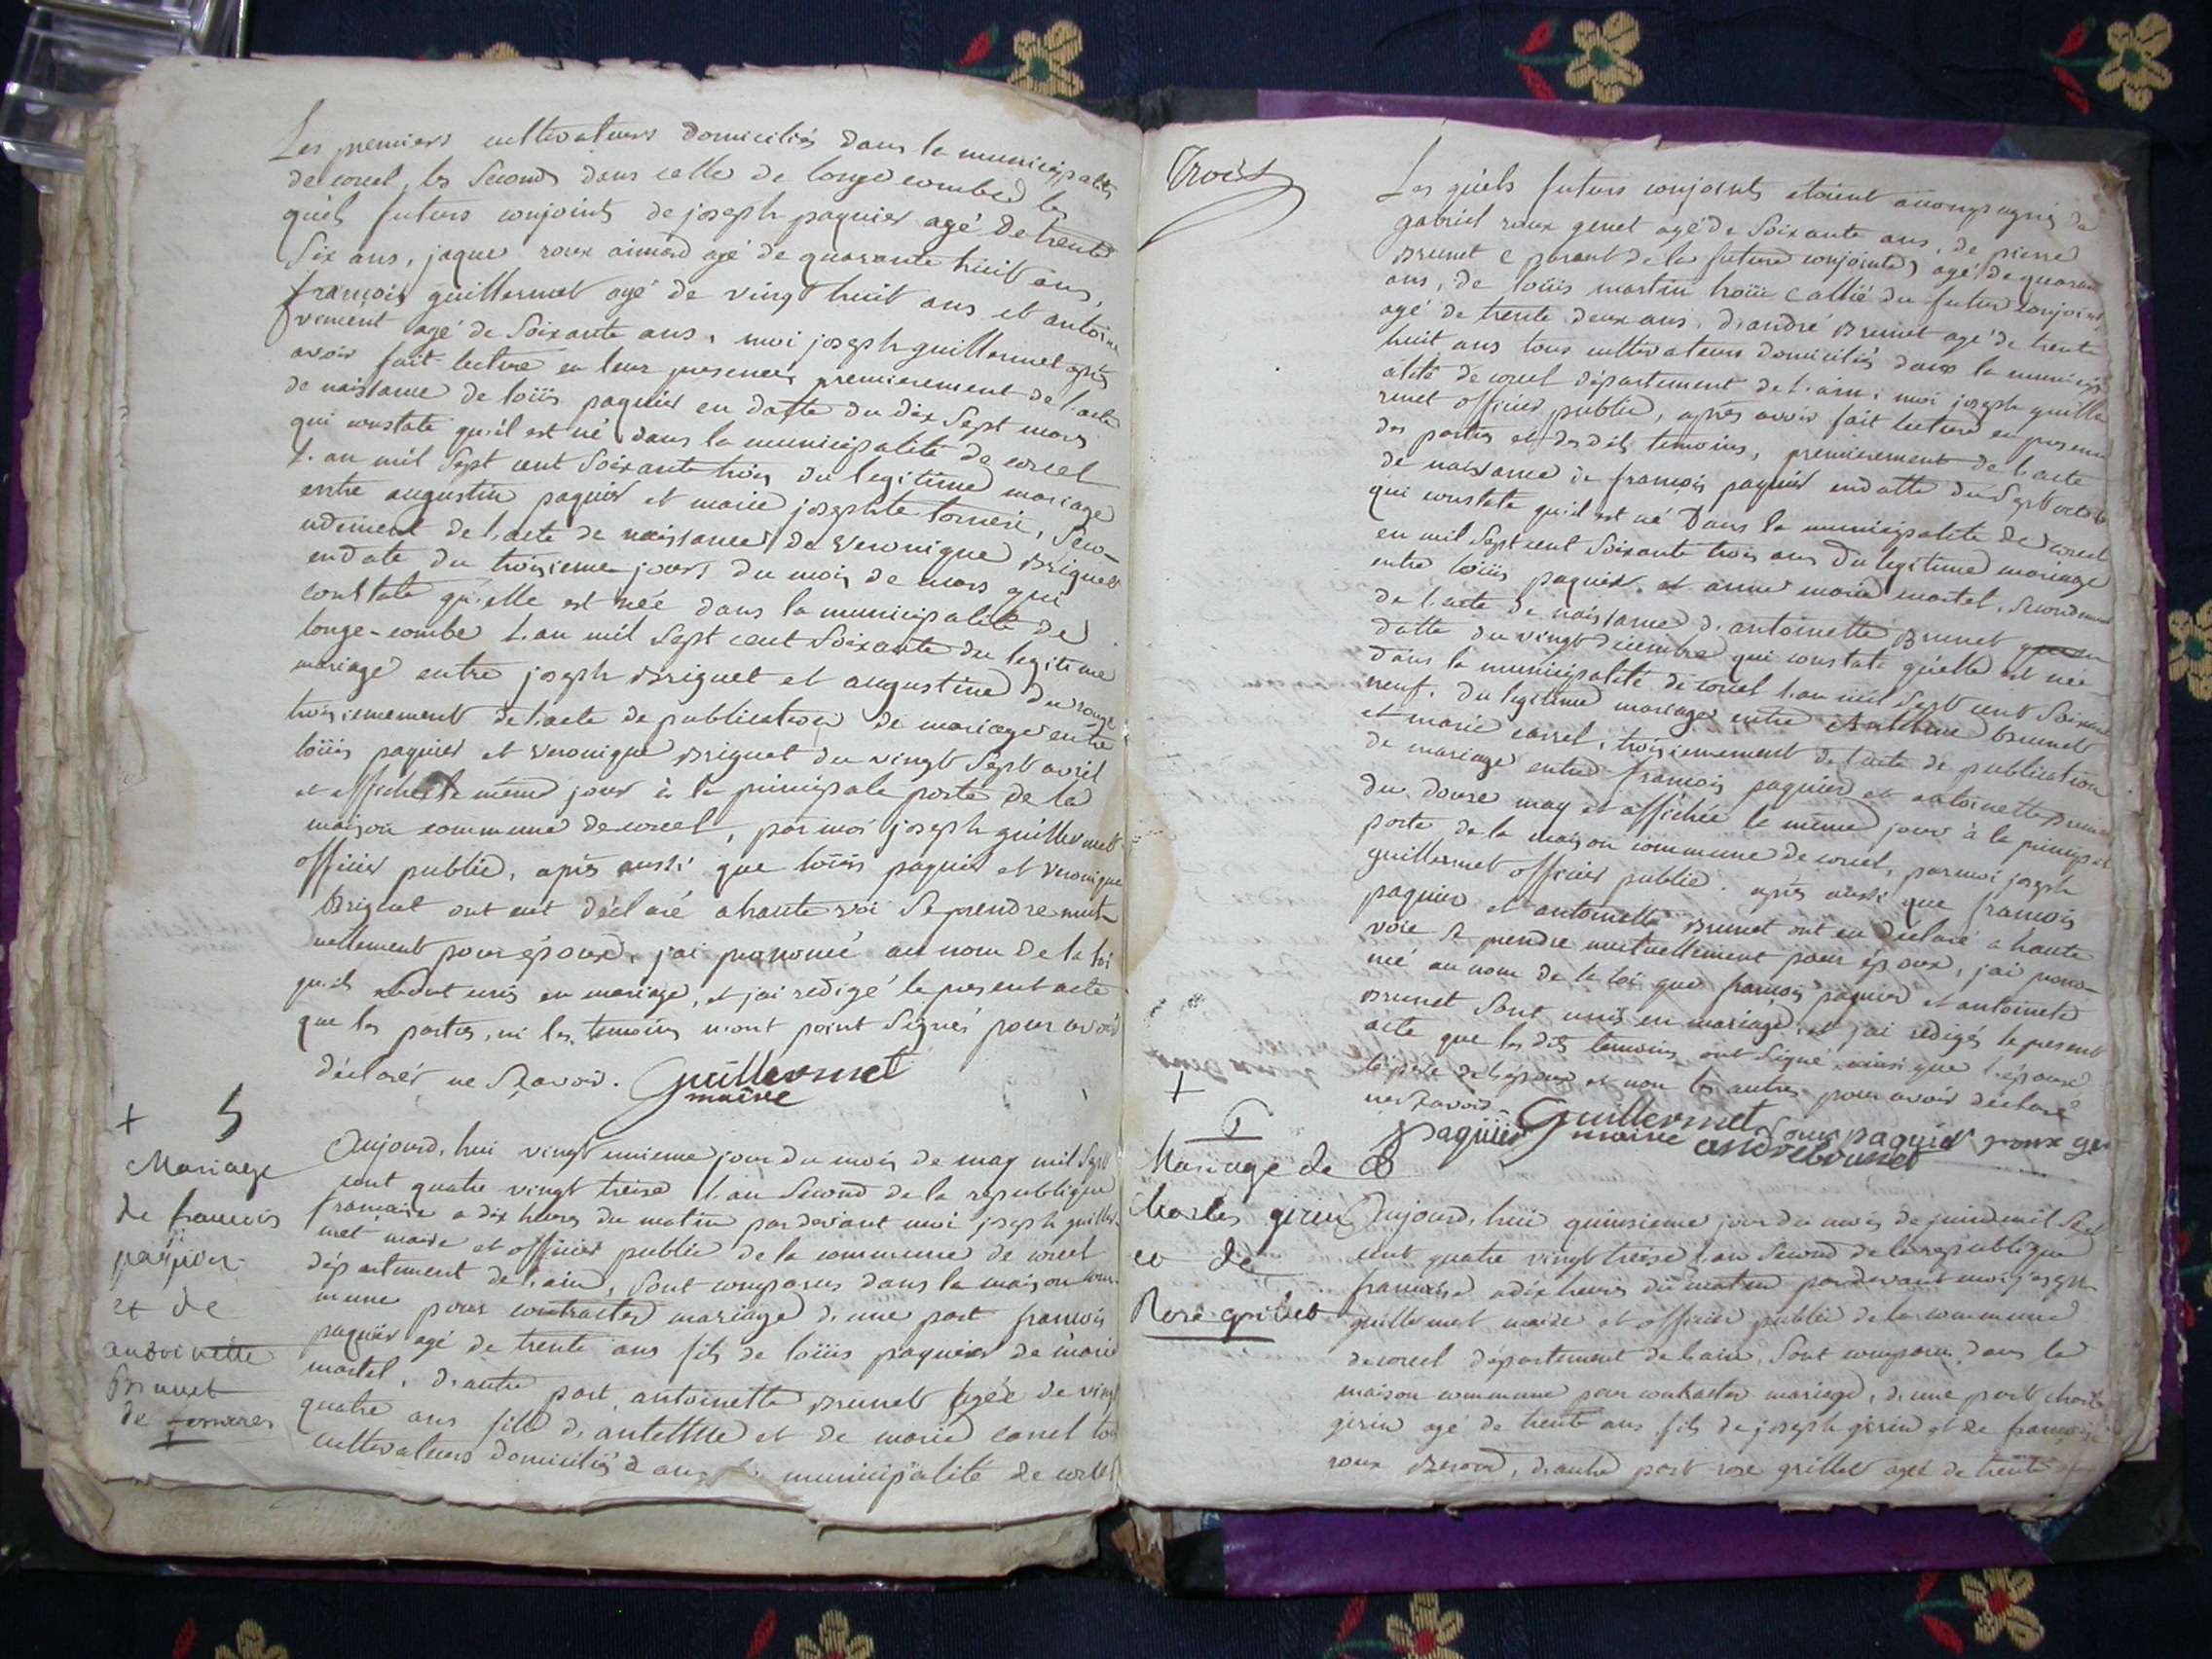 Les premiers cultivateurs domiciliés dans la municipalité
de corcel, les seconds dans celle de longe combe les
quels futurs conjoints de joseph paquier agé de trente
six ans, jaque roux aimard agé de quarante huit ans,
françois guillermet agé de vingt huit ans et antoine
vincent agé de soixante ans, moi joseph guillermet après
avoir fait lecture en leur presence, premierement de l'acte
de naissance de loüis paquier en datte du dix sept mars
qui constate qu'il est né dans la municipalité de corcel
l'an mil sept cent soixante trois du legitime mariage
entre augustin paquier et marie josephte, seco-
ndement de l'acte de naissance de veronique Briguet
endate du troisieme jour du mois de mars qui
constate qu'elle est née dans la municipalité de
longe-combe l'an mil sept cent soixante du legitime
mariage entre joseph Briguet et augustine
troisiemement de l'acte de publication de mariage entre
loüis paquier et veronique Briguet du vingt sept avril
et affiché le même jour à la principale porte de la
maison commune de corcel, par moi joseph guillermet
officier public, après aussi que loüis paquier et veronique
Briguet ont eut déclaré a haute voi se prendre mut-
uellement pour époux, j'ai prononcé au nom de la loi
qu'ils sont unis en mariage, et j'ai redigé le present acte
que les parties, ni les temoins n'ont point signés pour avoir
déclarér ne sçavoir. Guillermet
maire
+ 5
Mariage
de francois
paquier
et de
antoinette
Brunet
de
Aujourd'hui vingt unieme jour du mois de may mil sept
cent quatre vingt treise l'an second de la republique
francaise a dix heures du matin par devant moi joseph guiller
met maire et officier public de la commune de corcel
département de l'ain, sont comparus dans la maison com-
mune pour contracter mariage d'une part francois
paquier agé de trente ans fils de loüis paquier de marie
martel, d'autre part antoinette Brunet agée de vingt
quatre ans fille d'antelme et de marie carrel tous
cultivateurs domiciliés dans la municipalité de corcel
Trois
Les quels futurs conjoints étoient accompagnés de
gabriel roux genet agé de soixante ans, de pierre
Brunet c parant de la future conjointe agé de quarante
ans, de loüis martin c allié du futur conjoint
agé de trente deux ans, d'andré Brunet agé de trente
huit ans tous cultivateurs domiciliés dans la municip
alité de corcel département de l'ain; moi joseph guille
rmet officier public, après avoir fait lecture en presence
des parties et des dits temoins, premierement de l'acte
de naissance de françois paquier endatte du sept octobre
qui constate qu'il est né Dans la municipalité de corcel
en mil sept cent soixante trois ans du legitime mariage
entre loüis paquier et anne marie martel, secondement
de l'acte de naissance d'antoinette Brunet
datte du vingt décembre qui constate qu'elle est née
dans la municipalité de corcel l'an mil sept cent soixante
neuf. du legitime mariage entre Antelme brunet
et marie carrel, troisiemement de l'acte de publication
de mariage entre françois paquier et antoinette Brunet
du douse may et affichée le même jour à la principale
porte de la maison commune de corcel, par moi joseph
guillermet officier public. après aussi que francois
paquier et antoinette Brunet ont eu declaré a haute
voie se prendre mutuellement pour époux, j'ai prono-
ncé au nom de la loi que françois paquier et antoinete
Brunet sont unis en mariage, et j'ai redigés le present
acte que les dits temoins ont signé ainsi que l'époux
le père de l'époux et non les autres pour avoir declaré
ne sçavoir. Guillermet
paquier maire Louis paquier groux gen
andré brunet
+
Mariage de
Charles girin
et de
Rose grillet
Aujourd'hui quinsieme jour du mois de juin mil sept
cent quatre vingt treise l'an second de la republique
francaise a dix heures du matin par devant moi joseph
guillermet maire et officier public de la commune
de corcel département de l'ain, sont comparus dans la
maison commune pour contracter mariage, d'une part charle
girin agé de trente ans fils de joseph girin et de françoise
roux, d'autre part rose grillet agée de trente